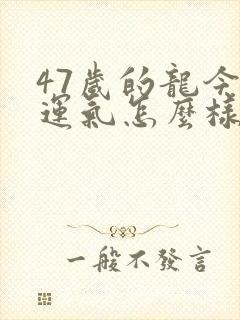 47歲的龍今
運氣怎麼樣
一般不發言